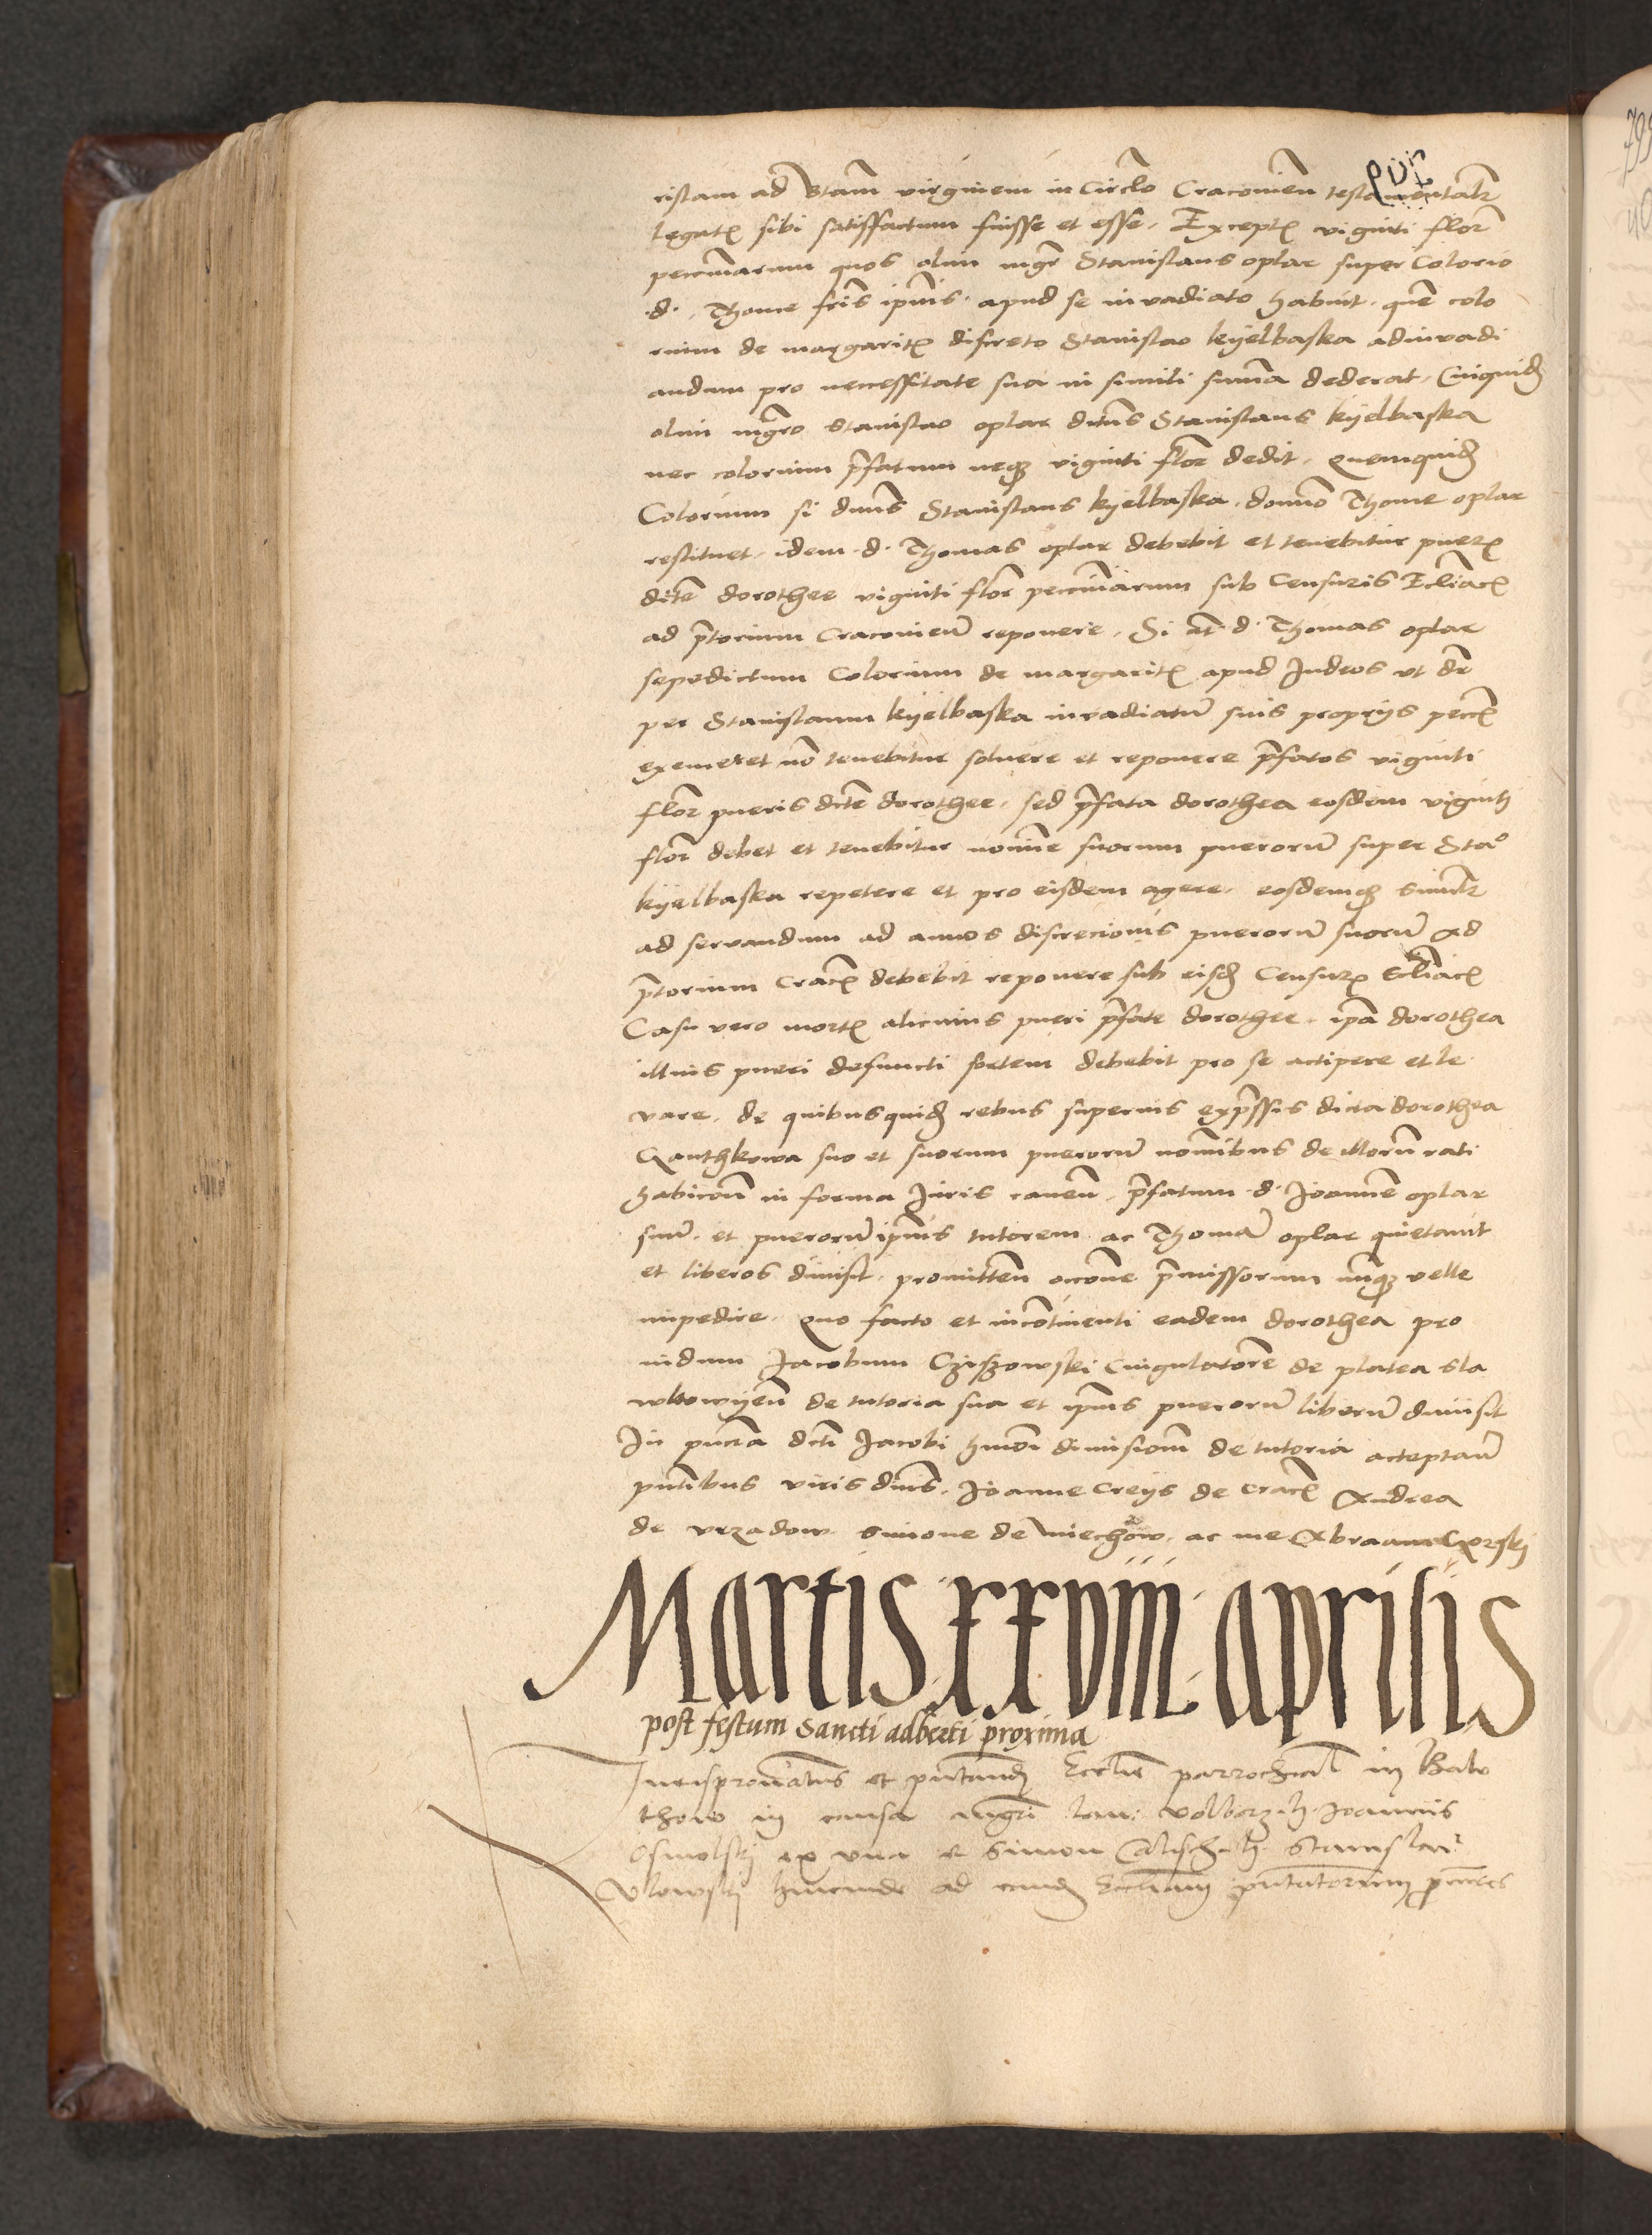 ristam ad Btam virginem in Circlo Cracovien testamentalr
legatis sibi satisffactum fuisse et esse. Exceptis viginti flor
peccuniarum quos olim mgr Stanislaus oplar super Colorio
.d. Thome fris ipius. apud se invadiato habuit. quem colo
rium de margaritis discreto Stanislao kyelbaska adinvadi
andum pro neccessitate sua in simili summa dederat. Cuiquid
olim mgro Stanislao oplar dictus Stanislaus kyelbaska
nec colorium prefatum neque viginti flor dedit. Quemquid
Colorium si dictus Stanislaus kyelbaska. domino Thome oplar
restituet. idem .d. Thomas oplar debebit et tenebitur pueris
dicte dorothee viginti flor peccuniarum sub Censuris Ecliacis
ad pretorium Cracovien reponere. Si at .d. Thomas oplar
sepedictum Colorium de margaritis apud Iudeos ut dr
per Stanislaum kyelbaska invadiatum suis proprys peccis
exemeret no tenebitur solvere et reponere prefatos viginti
flor pueris dicte dorothee. sed prefata dorothea eosdem viginti
flor debet et tenebitur nomine suorum puerorum super Stao
kyelbaska repetere et pro eisdem agere. eosdemque similr
ad servandum ad annos discrecionis puerorum suorum ad
pretorium Crac debebit reponere sub eisdem Censuris Ecliacis
Casu vero mortis alicuius pueri prefate dorothee. ipa dorothea
illius pueri defuncti sortem debebit pro se accipere et le
vare. de quibusquid rebus superius expressis dicta dorothea
suo et suorum puerorum nominibus de illorum rati
habicone in forma Iuris caven. prefatum .d. Joannem oplar
suum. et puerorum ipius tutorem ac Thomam oplar quietavit
et liberos dimisit. promitten occone premissorum nunque velle
impedire. Quo facto et incontinenti eadem dorothea pro
vidum Jacobum Cziszowski Cingulatorem de platea sla
wkowyen de tutoria sua et ipius puerorum liberum dimisit
In pncia dicti Jacobi hmoi dimissionem de tutoria acceptan
pntibus viris dnis. Joanne Creys de Crac Andrea
de Urzadow. Simone de Miechow. ac me Abraam Gorski
Martis. xxviii. aprilis
post festum Sancti adberti proxima
Iurispronatus et pntandi Ecclie parrochial in Balw
thow in causa mgri Volborz Joannis
Osmolskj ex una et Simon Stanislai
Ulowskj hincinde ad eand Eccliam pntatorum